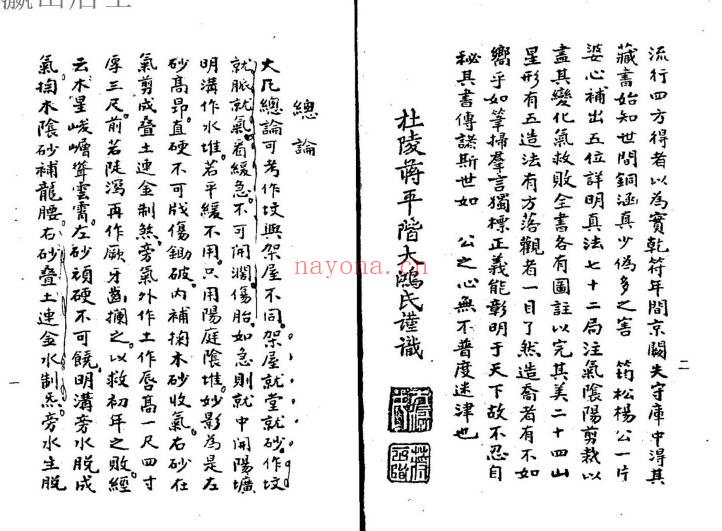 流行四方得者以為寶乾符年間京闕失守庫中得其
藏書始知世間銅函真少偽多之害 筠松楊公一片
婆心補出五位詳明真法七十二局注氣陰陽剪裁以
盡其變化氣救敗全書各有圖註以完其美二十四山
星形有五造法有方落觀者一目了然造喬者有不如
嚮乎如筆掃羣言獨標正義能彰明于天下故不忍自
秘其書傳諾斯世如 公之心無不普度迷津也
杜陵蔣平階大鴻氏謹識
二
總論
大凡總論可考作坟與架屋不同。架屋就堂就砂。作坟
就脈就氣着緩急。不可開濶傷胎。如急則就中開陽壙
明溝作水堆。若平緩不用。只用陽庭陰堆。妙影為是。左
砂高昂。直硬不可戕傷鋤破。内補掏木砂收氣。右砂在
氣剪成叠土連金制煞。旁氣外作土作唇。高一尺四寸
厚三尺。前若陡瀉。再作厥牙齒攔之。以救初年之敗。經
云。木星峻嶒聳雲霄。左砂頑硬不可饒。明溝旁水脱成
氣。掏木陰砂補龍腰。右砂叠土連金水。制炁旁水生脱
一
nayona.cn